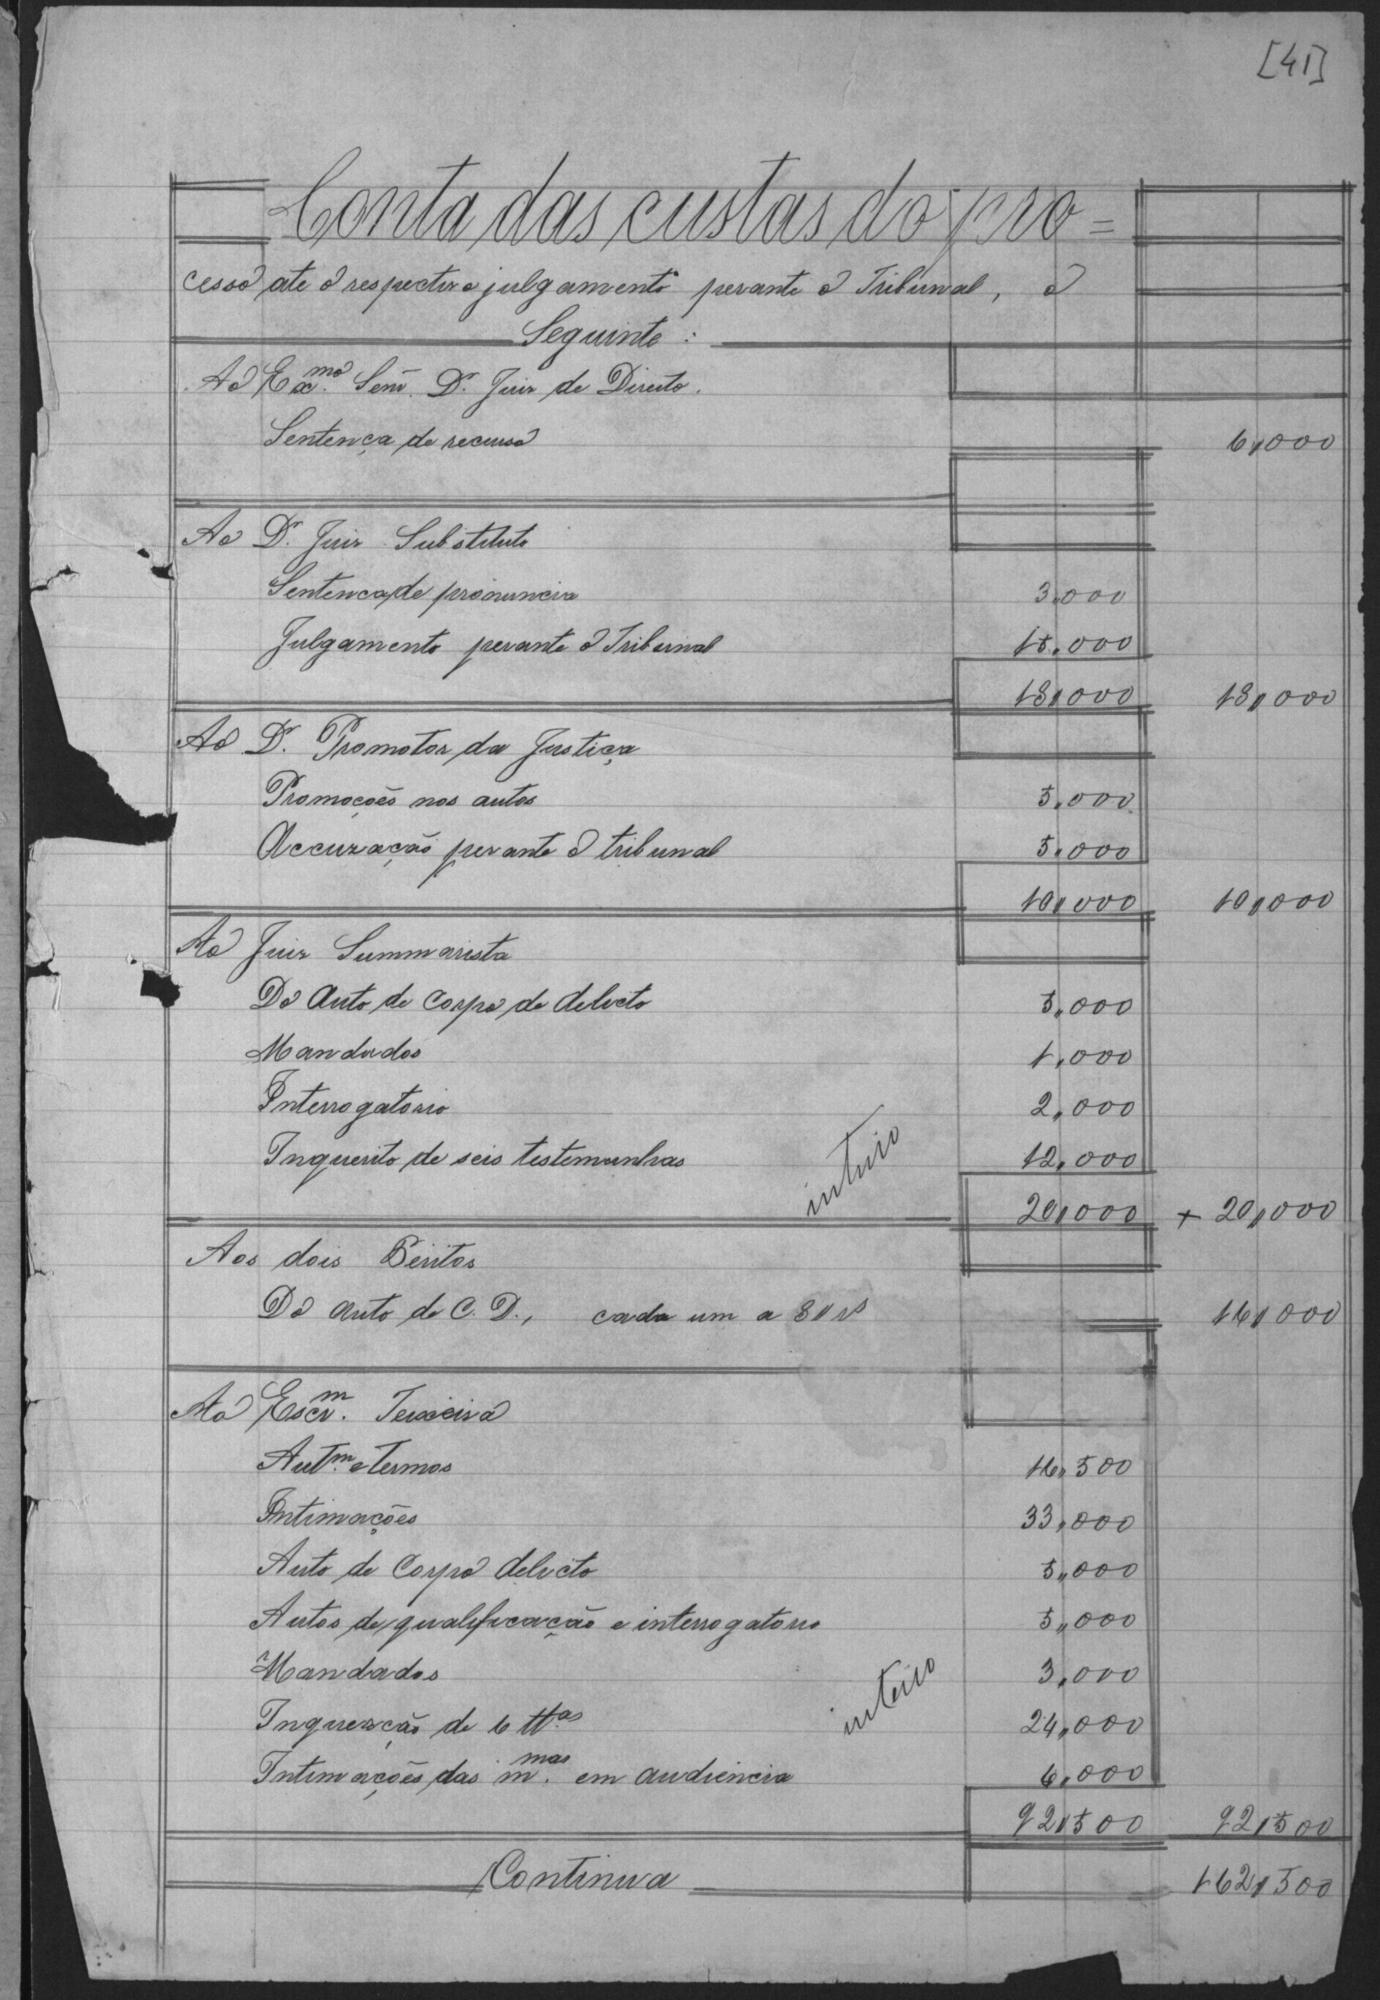 [41]
Conta das custas do pro=
cesso ate o respectivo julgamento perante o Tribunal, o
Seguinte:
Ao Exmo. Senr. Dr. Juiz de Direito.
Sentença de recurso 6,000
Ao Dr. Juiz Substituto
Sentença de pronuncia 3,000
Julgamento perante o Tribunal 15,000
18,000 18,000
Ao Dr. Promotor da Justiça
Promoções nos autos 5,000
Accuzação perante o tribunal 5,000
10,000 10,000
Ao Juiz Summarista
Do Auto de Corpo de delicto 5,000
Mandados 1,000
Interrogatorio 2,000
Inquerito de seis testemunhas inteiro 12,000
20,000 + 20,000
Aos dois Peritos
Do auto de C. D., cada um a 8//rs 16,000
Ao Escrm. Teixeira
Autm. e termos 16,500
Intimações 33,000
Auto de Corpo delicto 5,000
Autos de qualificação e interrogatorio 5,000
Mandados 3,000
Inquerição de 6 ttas inteiro 24,000
Intimações das mmas. em audiencia 6,000
92,500 92,500
Continua 162,500